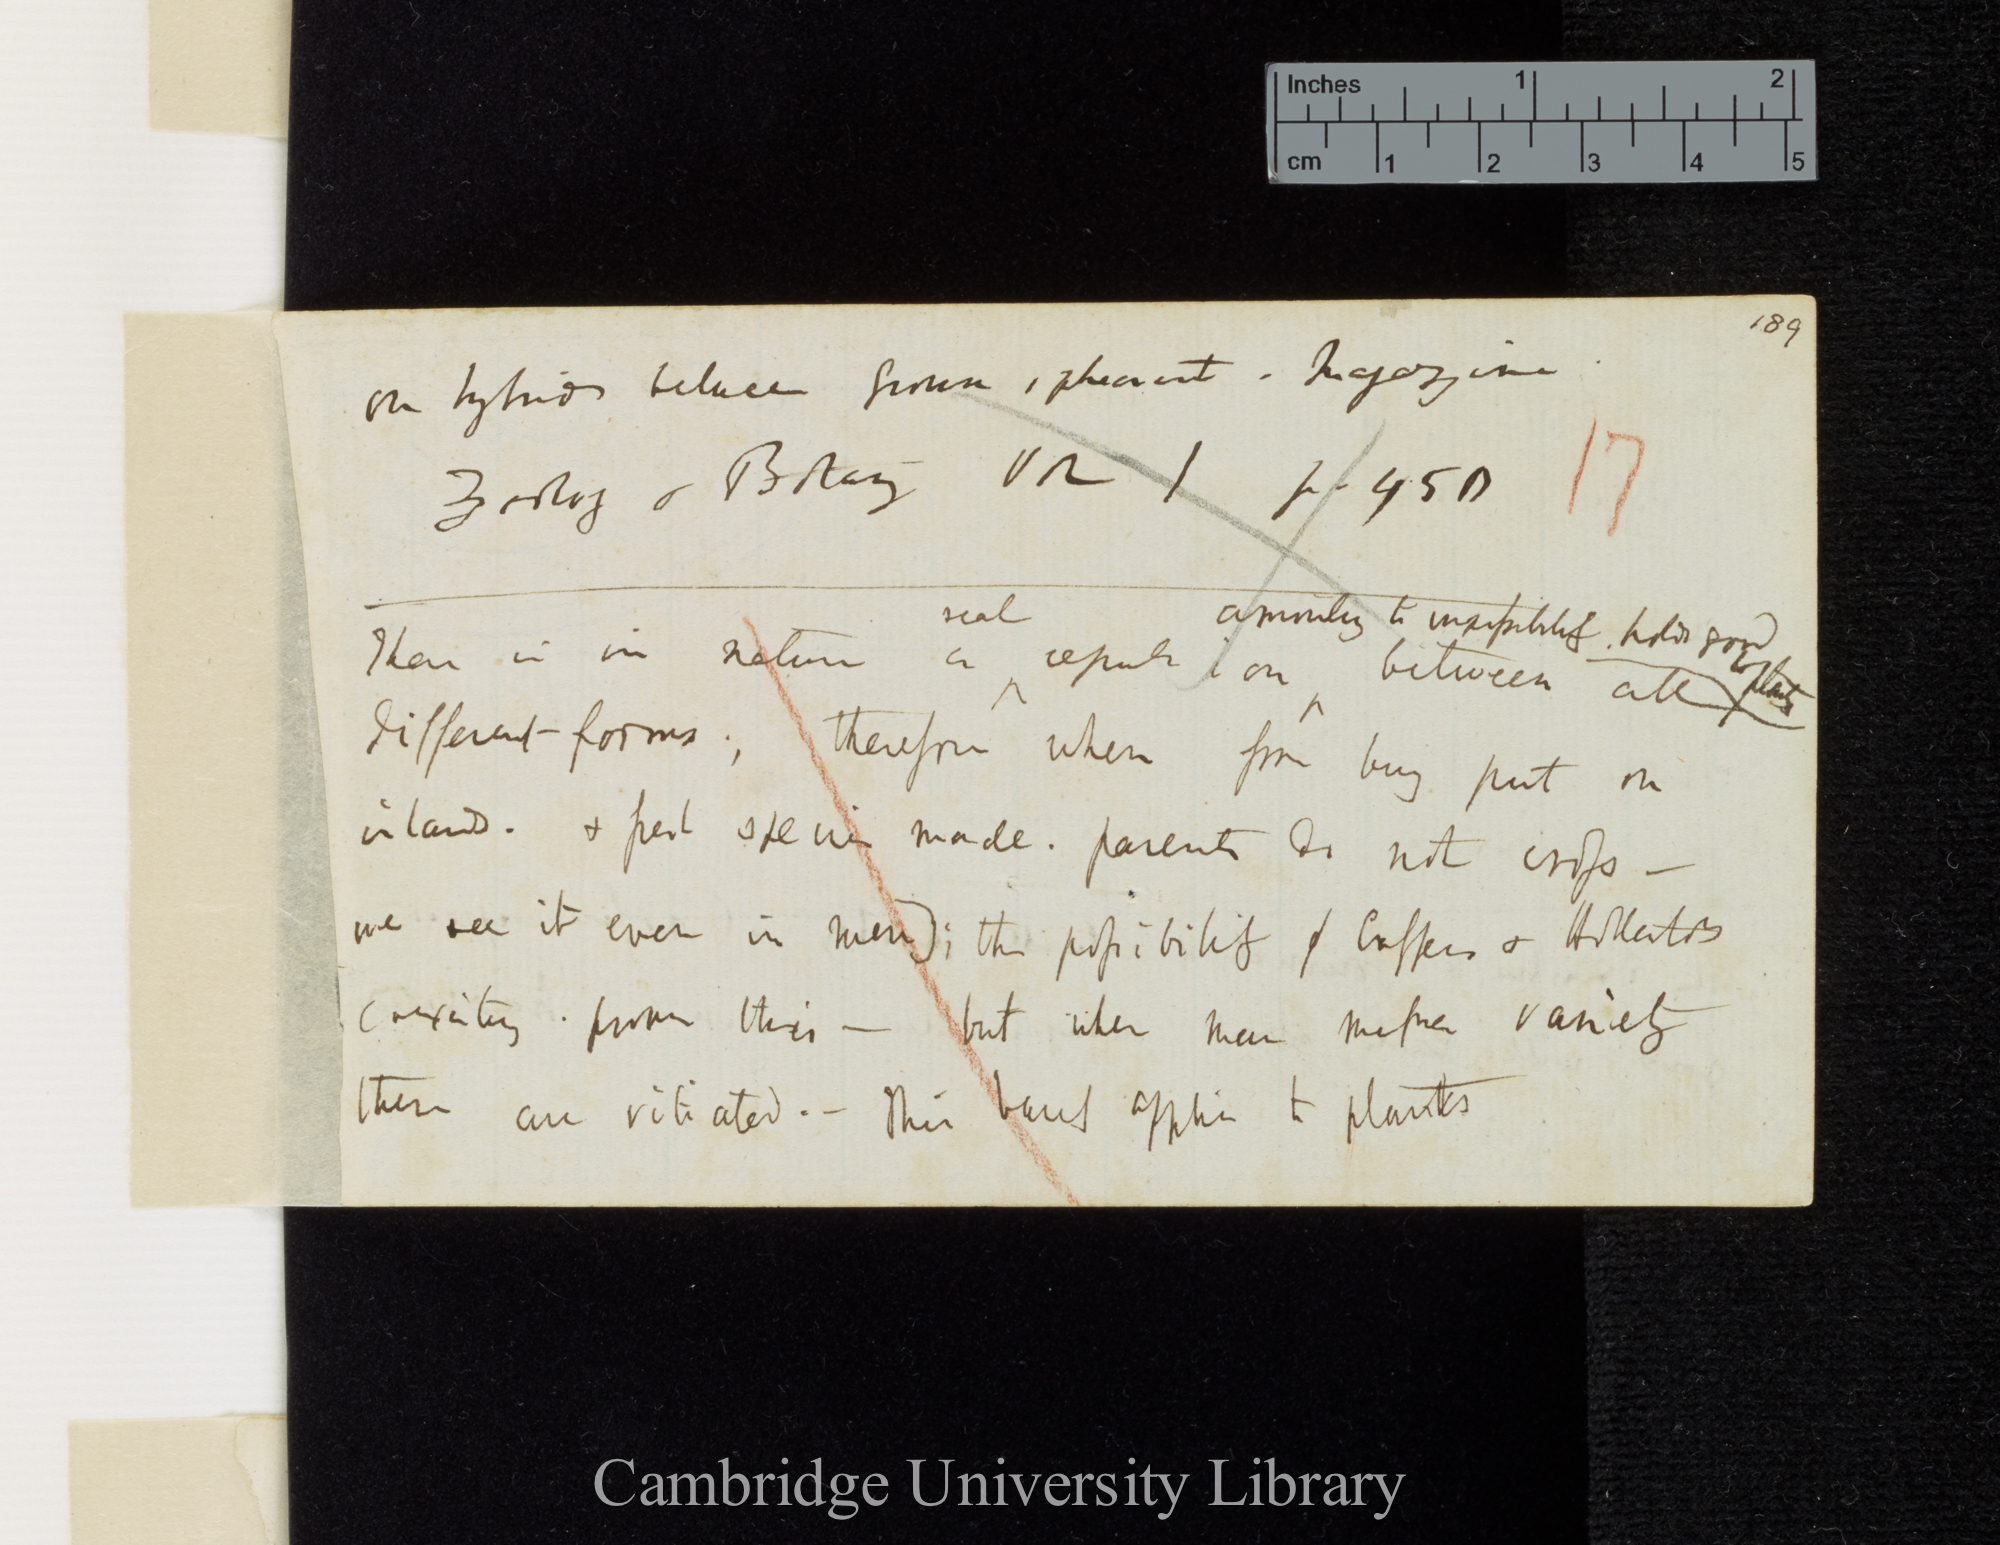 Inches 1 2
cm 1 2 3 4 5
189
on hybrids between grouse & pheasant. Magazine
Zoolog & Botany Vol 1 p. 450
17
real amounting to impossibility. holds good in plants
There is in nature a repulsion between all
different forms; therefore when from being put on
island. & fresh species made. parents do not cross —
we see it even in men); the possibility of Caffers & Hottentots
coexisting. proves this — but when man makes variety
these are vitiated. — This applies to plants
Cambridge University Library